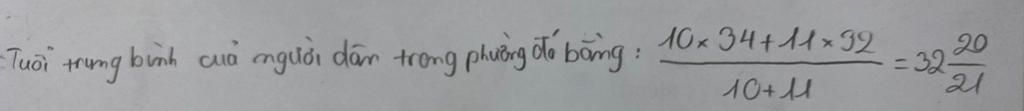 Tuổi trung bình của người dân trong phường đó bằng: \frac{10 \times 34 + 11 \times 32}{10 + 11} = 32\frac{20}{21}